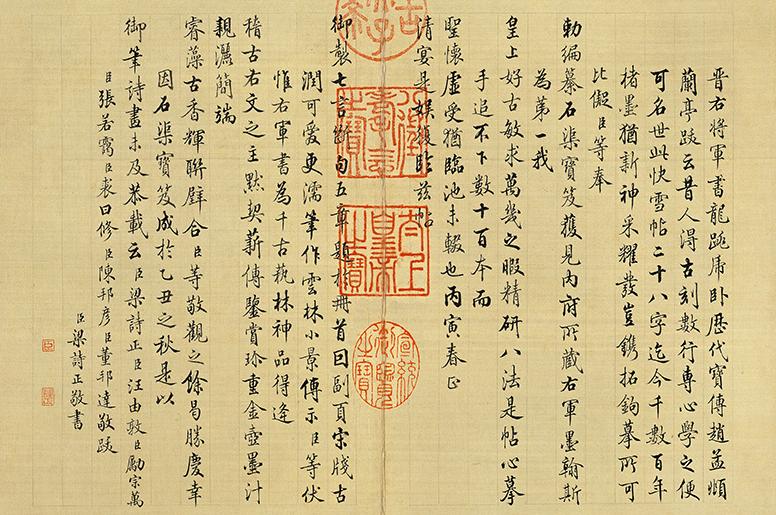 晉右將軍書龍跳虎臥歷代寶傳趙孟頫
蘭亭跋云昔人得古刻數行專心學之便
可名世此快雪帖二十八字迄今千數百年
楮墨猶新神采耀發豈鐫拓鉤摹所可
比儗臣等奉
勅編纂石渠寶笈獲見內府所藏右軍墨翰斯
為第一我
皇上好古敏求萬幾之暇精研八法是帖心摹
手追不下數十百本而
聖懷虛受猶臨池未輟也丙寅春正
清宴是娛復臨茲帖
御製七言斷句五章題於冊首回副頁宋牋古
潤可愛更濡筆作雲林小景傳示臣等伏
惟右軍書為千古藝林神品得逢
稽古右文之主默契薪傳鑒賞珍重金壺墨汁
親灑簡端
睿藻古香輝聯璧合臣等敬觀之餘曷勝慶幸
因石渠寶笈成於乙丑之秋是以
御筆詩畫未及恭載云臣梁詩正臣汪由敦臣勵宗萬
臣張若靄臣裘曰修臣陳邦彥臣董邦達敬跋
臣梁詩正敬書
八徵耄念之寶
太上皇帝之寶
宣統御覽之寶